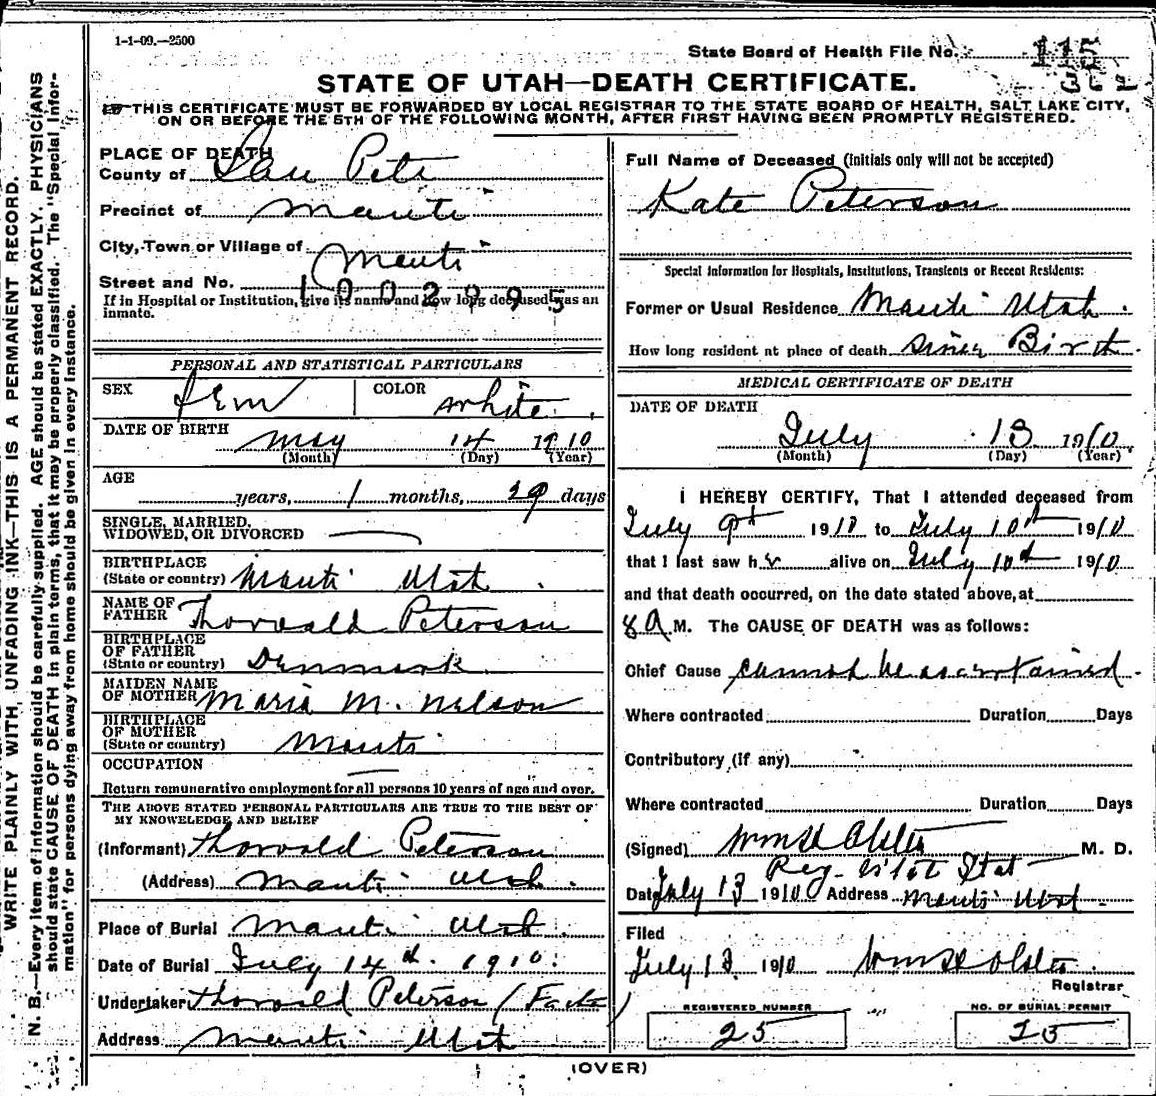 1-1-09.—2500
State Board of Health File No. 115
362
STATE OF UTAH—DEATH CERTIFICATE.
THIS CERTIFICATE MUST BE FORWARDED BY LOCAL REGISTRAR TO THE STATE BOARD OF HEALTH, SALT LAKE CITY,
ON OR BEFORE THE 5TH OF THE FOLLOWING MONTH, AFTER FIRST HAVING BEEN PROMPTLY REGISTERED.
WRITE PLAINLY WITH UNFADING INK—THIS IS A PERMANENT RECORD.
N. B.—Every item of information should be carefully supplied. AGE should be stated EXACTLY. PHYSICIANS
should state CAUSE OF DEATH in plain terms, that it may be properly classified. The "Special Infor-
mation" for persons dying away from home should be given in every instance.
PLACE OF DEATH
County of San Pete
Precinct of Manti
City, Town or Village of Manti
Street and No.
1002995
If in Hospital or Institution, give its name and how long deceased was an
inmate.
PERSONAL AND STATISTICAL PARTICULARS
SEX Fem COLOR White
DATE OF BIRTH May 14 1910
(Month) (Day) (Year)
AGE
years, 1 months, 29 days
SINGLE, MARRIED,
WIDOWED, OR DIVORCED
BIRTHPLACE
(State or country) Manti Utah
NAME OF
FATHER Thorvald Peterson
BIRTHPLACE
OF FATHER
(State or country) Denmark
MAIDEN NAME
OF MOTHER Maria M. Nelson
BIRTHPLACE
OF MOTHER
(State or country) Manti
OCCUPATION
Return remunerative employment for all persons 10 years of age and over.
THE ABOVE STATED PERSONAL PARTICULARS ARE TRUE TO THE BEST OF
MY KNOWLEDGE AND BELIEF
(Informant) Thorvald Peterson
(Address) Manti Utah.
Place of Burial Manti Utah.
Date of Burial July 14th. 1910.
Undertaker Thorvald Peterson (
Address Manti Utah
Full Name of Deceased (Initials only will not be accepted)
Kate Peterson
Special Information for Hospitals, Institutions, Transients or Recent Residents:
Former or Usual Residence Manti Utah.
How long resident at place of death Since Birth.
MEDICAL CERTIFICATE OF DEATH
DATE OF DEATH
July 13 1910
(Month) (Day) (Year)
I HEREBY CERTIFY, That I attended deceased from
July 9th 1910 to July 10th 1910
that I last saw her alive on July 10th 1910
and that death occurred, on the date stated above, at
8 A M. The CAUSE OF DEATH was as follows:
Chief Cause cannot be ascertained.
Where contracted Duration Days
Contributory (if any)
Where contracted Duration Days
(Signed) Wm H M. D.
Reg. Stat
Date July 13 1910 Address Manti Utah.
Filed
July 13, 1910 Wm H
Registrar
REGISTERED NUMBER
25
NO. OF BURIAL PERMIT
25
(OVER)